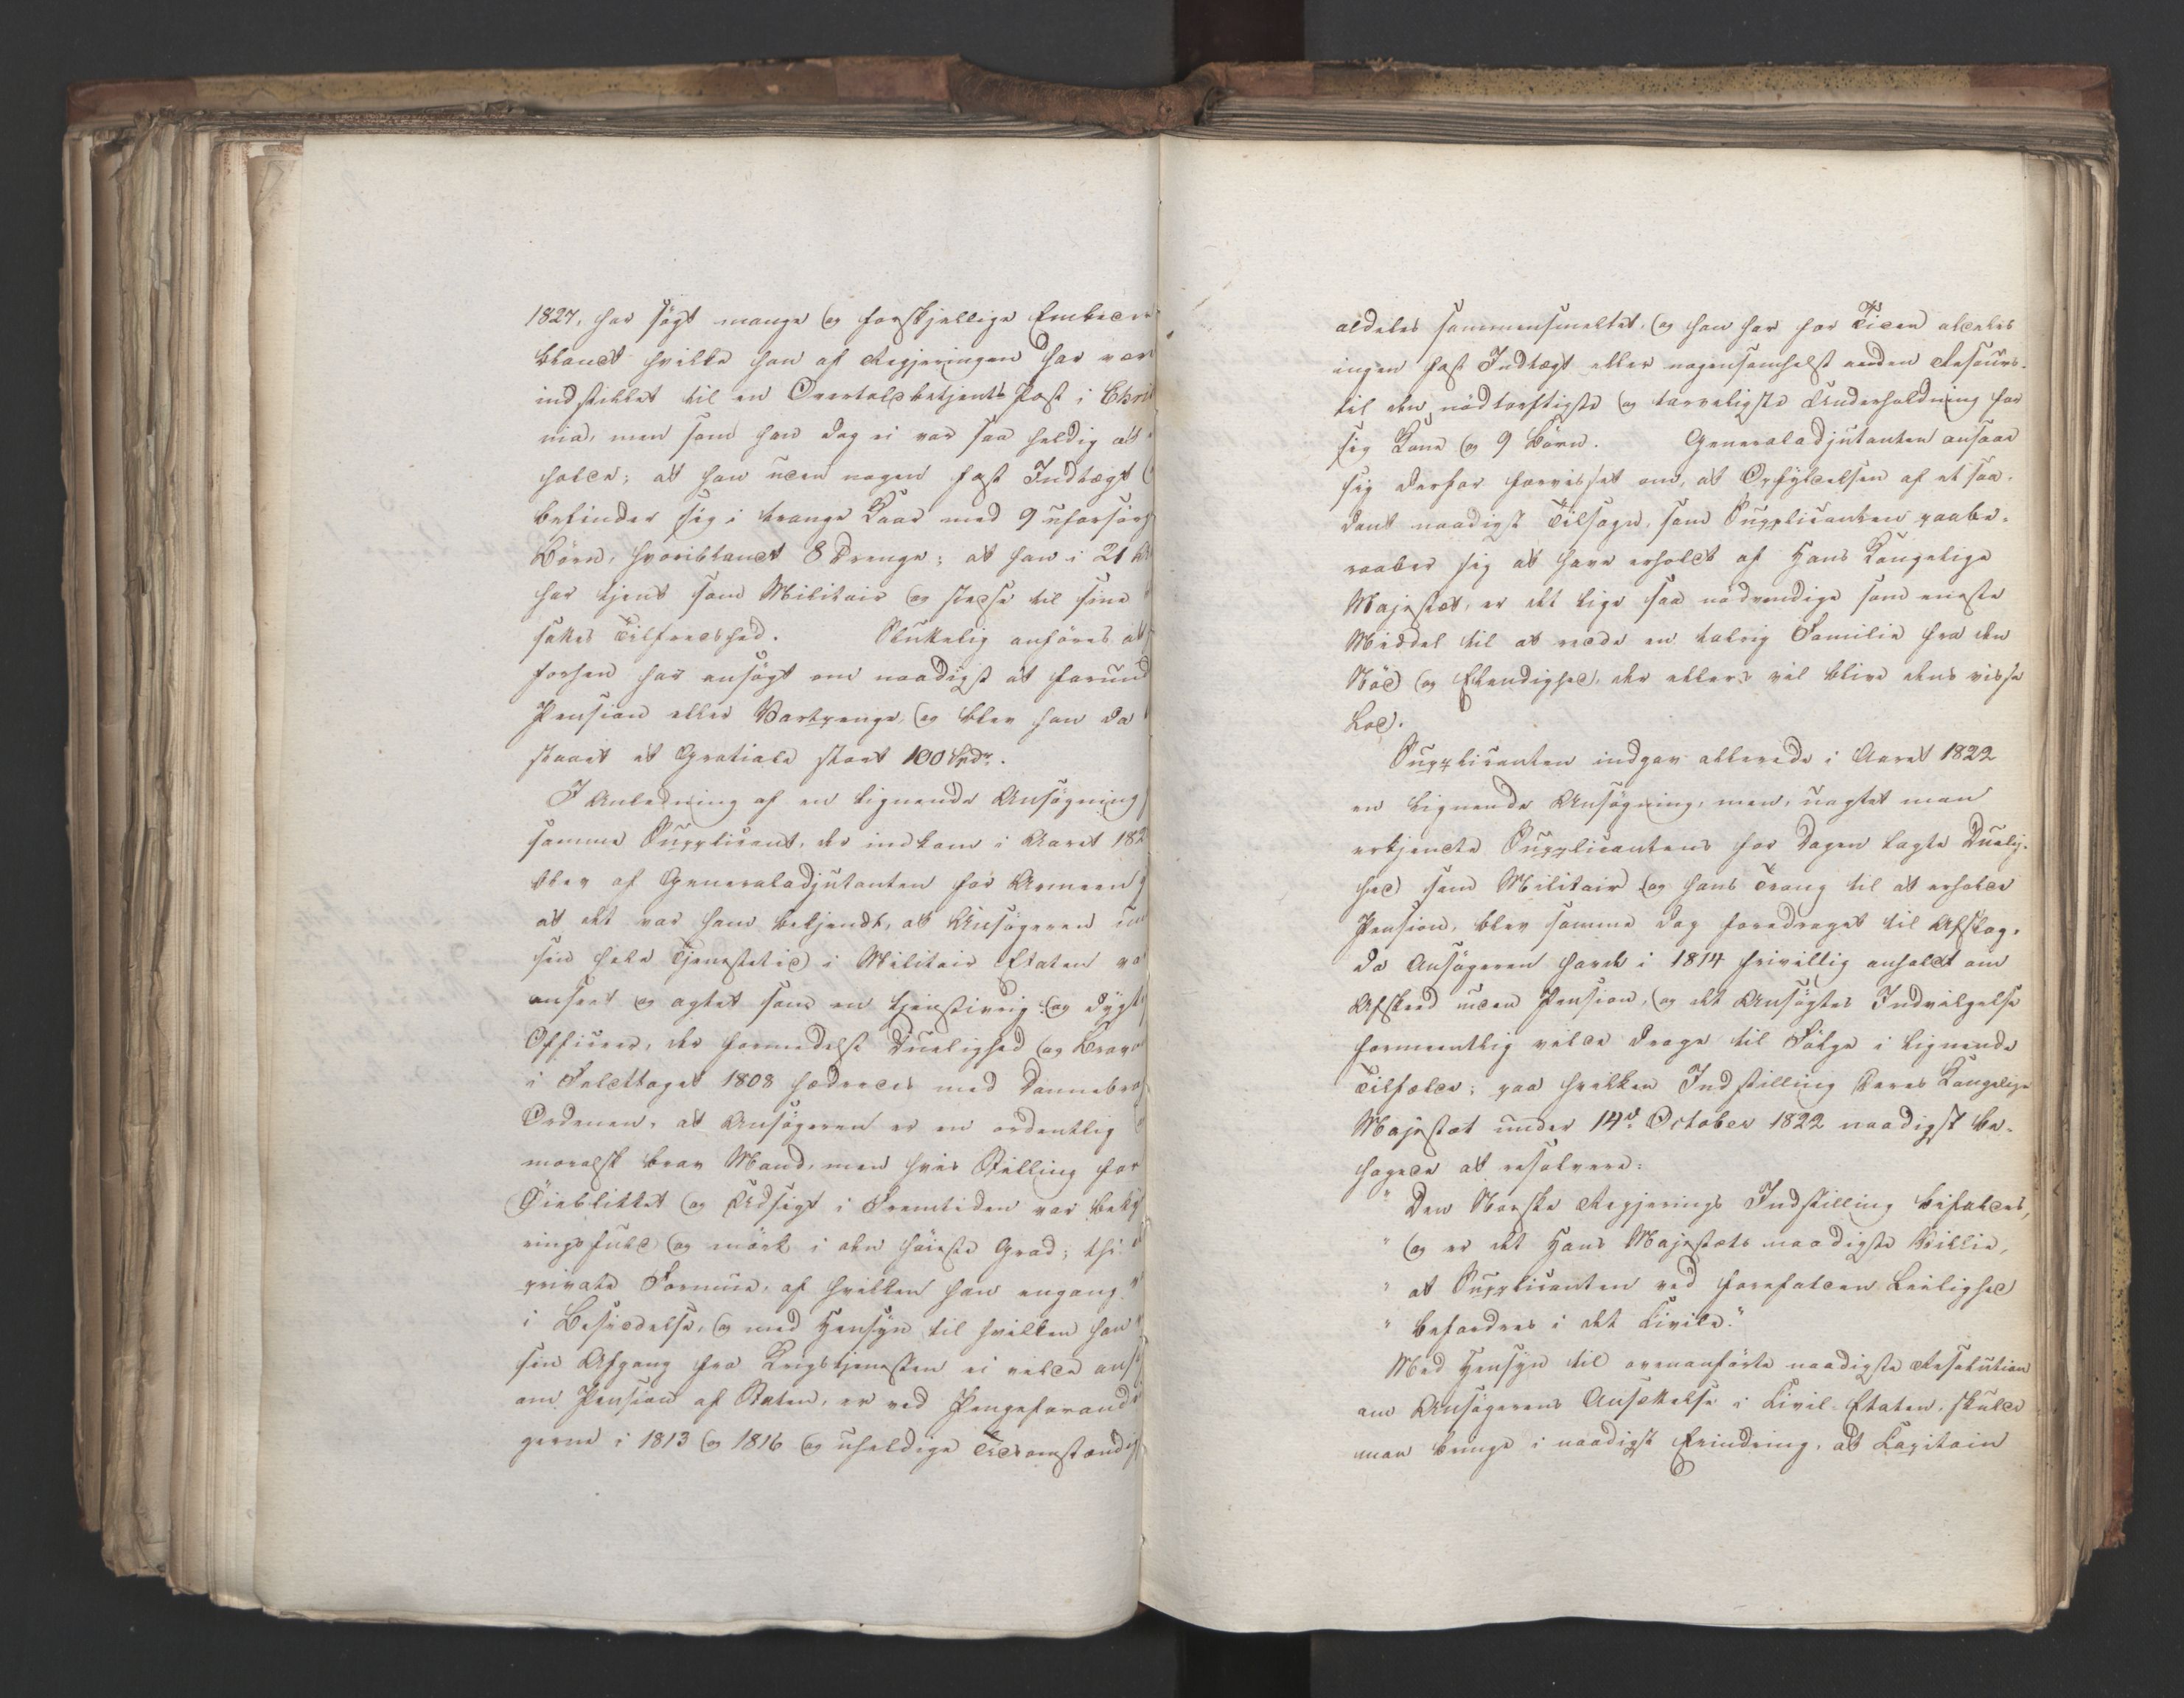 1827, har søgt mange og forskjellige Embeder
blandt hvilke han af Regjeringen har vær
indstillet til en Overtoldbetjents Post i Chri
nia, men som han dog ei var saa heldig at
holde; at han uden nogen fast Indtægt
befinder sig i trange Kaar med 9 uforsørg
Børn, hvoriblandt 8 Drenge; at han i 21
har tjent som Militair og stedse til sine
sattes Tilfredshed. Sluttelig anføres at
forhen har ansøgt om naadigst at forund
Pension eller Vartpenge, og blev han da
staaet et Gratiale stort 100 Spdr.
I Anledning af en lignende Ansøgning
samme Supplicant, der indkom i Aaret 182
blev af Generaladjutanten for Armeen
at det var ham bekjendt, at Ansøgeren un
sin hele Tjenestetid i Militair Etaten va
anseet og agtet som en tjenstivrig og dygt
Officeer, der formedelst Duelighed og Brav
i Felttoget 1808 hædredes med Dannebro
Ordenen, at Ansøgeren er en ordentlig
moralsk brav Mand, men hvis Stilling for
Øieblikket og Udsigt i Fremtiden var beky
ringsfuld og mørk i den høieste Grad; thi
private Formue, af hvilken han engang
i Besiddelse, og med Hensyn til hvilken han
sin Afgang fra Krigstjenesten ei vilde ans
om Pension af Staten, er ved Pengeforand
gerne i 1813 og 1816 og uheldige Tidsomstændig
aldeles sammensmeltet, og han har for Tiden aldeles
ingen fast Indtægt eller nogensomhelst anden Resours
til den nødtørftigste og tarveligste Underholdning for
sig Kone og 9 Børn. Generaladjutanten ansaae
sig derfor forvisset om, at Opfyldelsen af et saa-
dant naadigst Tilsagn, som Supplicanten paabe-
raaber sig at have erholdt af Hans Kongelige
Majestæt, er det lige saa nødvendige som eneste
Middel til at redde en talrig Familie fra den
Nød og Elendighed, der ellers vil blive dens visse
Lod.
Supplicanten indgav allerede i Aaret 1822
en lignende Ansøgning, men, uagtet man
erkjendte Supplicantens for Dagen lagte Duelig-
hed som Militair og hans Trang til at erholde
Pension, blev samme dog foredraget til Afslag,
da Ansøgeren havde i 1814 frivillig anholdt om
Afskeed uden Pension, og det Ansøgtes Indvilgelse
formeentlig vilde drage til Følge i lignende
Tilfælde; paa hvilken Indstilling Deres Kongelige
Majestæt under 14d October 1822 naadigst be-
hagede at resolvere:
" Den Norske Regjerings Indstilling bifaldes,
" og er det Hans Majestæts naadigste Villie,
" at Supplicanten ved forefalden Leilighed
" befordres i det Civile."
Med Hensyn til ovenanførte naadigste Resolution
om Ansøgerens Ansættelse i Civil-Etaten, skulde
man bringe i naadigst Erindring, at Capitain